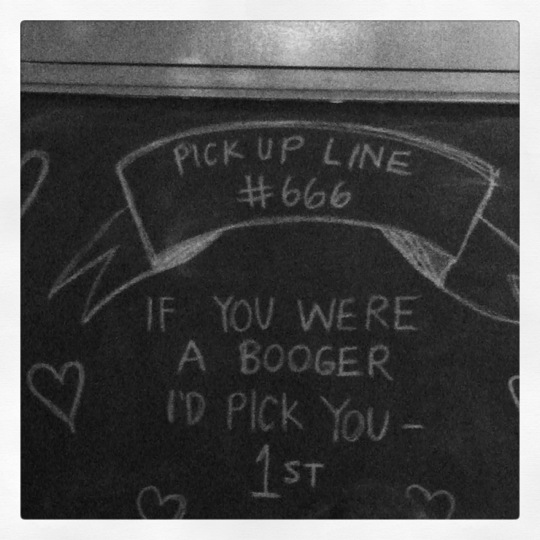 PICK UP LINE
#666
IF YOU WERE
A BOOGER
I'D PICK YOU -
1ST